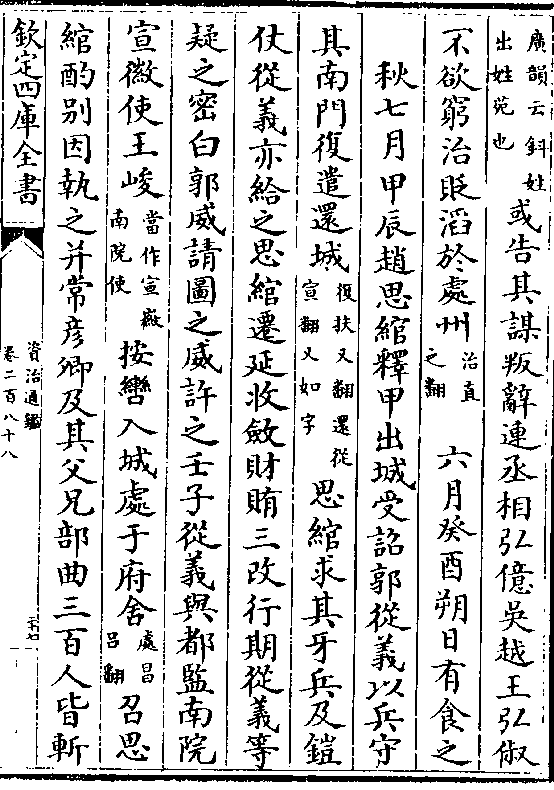 廣韻云鈄姓
出姓苑也
或告其謀叛辭連丞相弘億吳越王弘俶
不欲窮治貶滔於處州
治直
之翻
六月癸酉朔日有食之
秋七月甲辰趙思綰釋甲出城受詔郭從義以兵守
其南門復遣還城
復扶又翻還從
宣翻又如字
思綰求其牙兵及鎧
仗從義亦給之思綰遷延收斂財賄三改行期從義等
疑之密白郭威請圖之威許之壬子從義與都監南院
宣徽使王峻
當作宣徽
南院使
按轡入城處于府舍
處昌
呂翻
召思
綰酌別因執之并常彦卿及其父兄部曲三百人皆斬
欽定四庫全書
資治通鑑
卷二百八十八